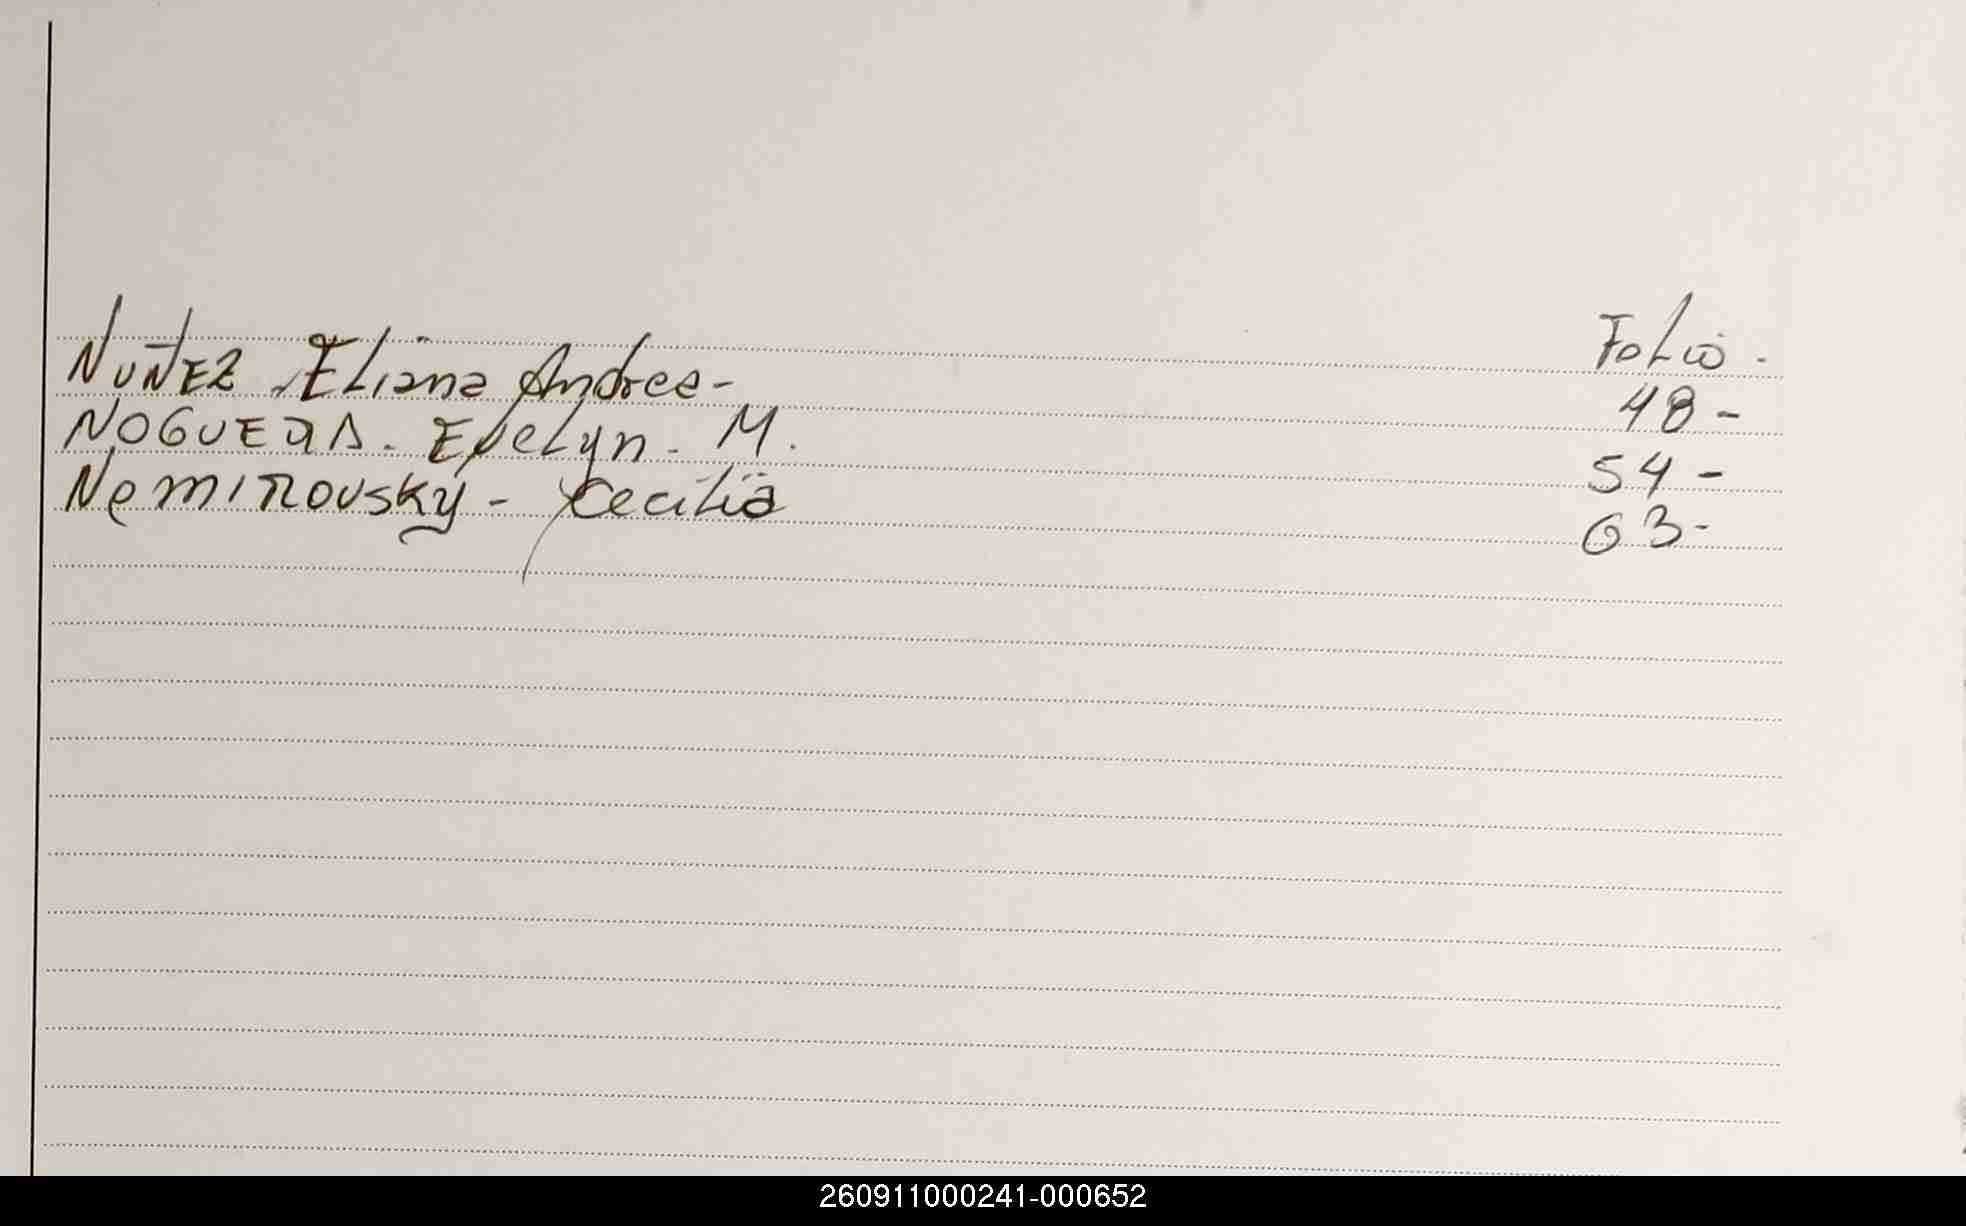 Folio -
NUÑEZ, Eliana Andrea - 48 -
NOGUERA - Evelyn - M. 54 -
Nemirovsky - Cecilia 63 -
260911000241-000652